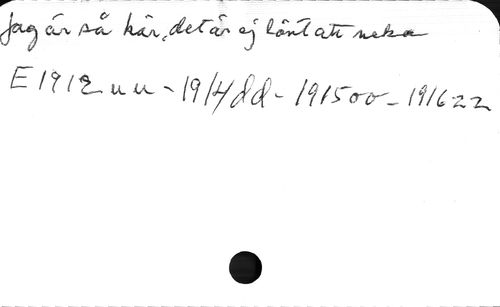 Jag är så kär, det är ej lönt att neka
E 1912 uu - 1914 dd - 1915 oo - 1916 zz